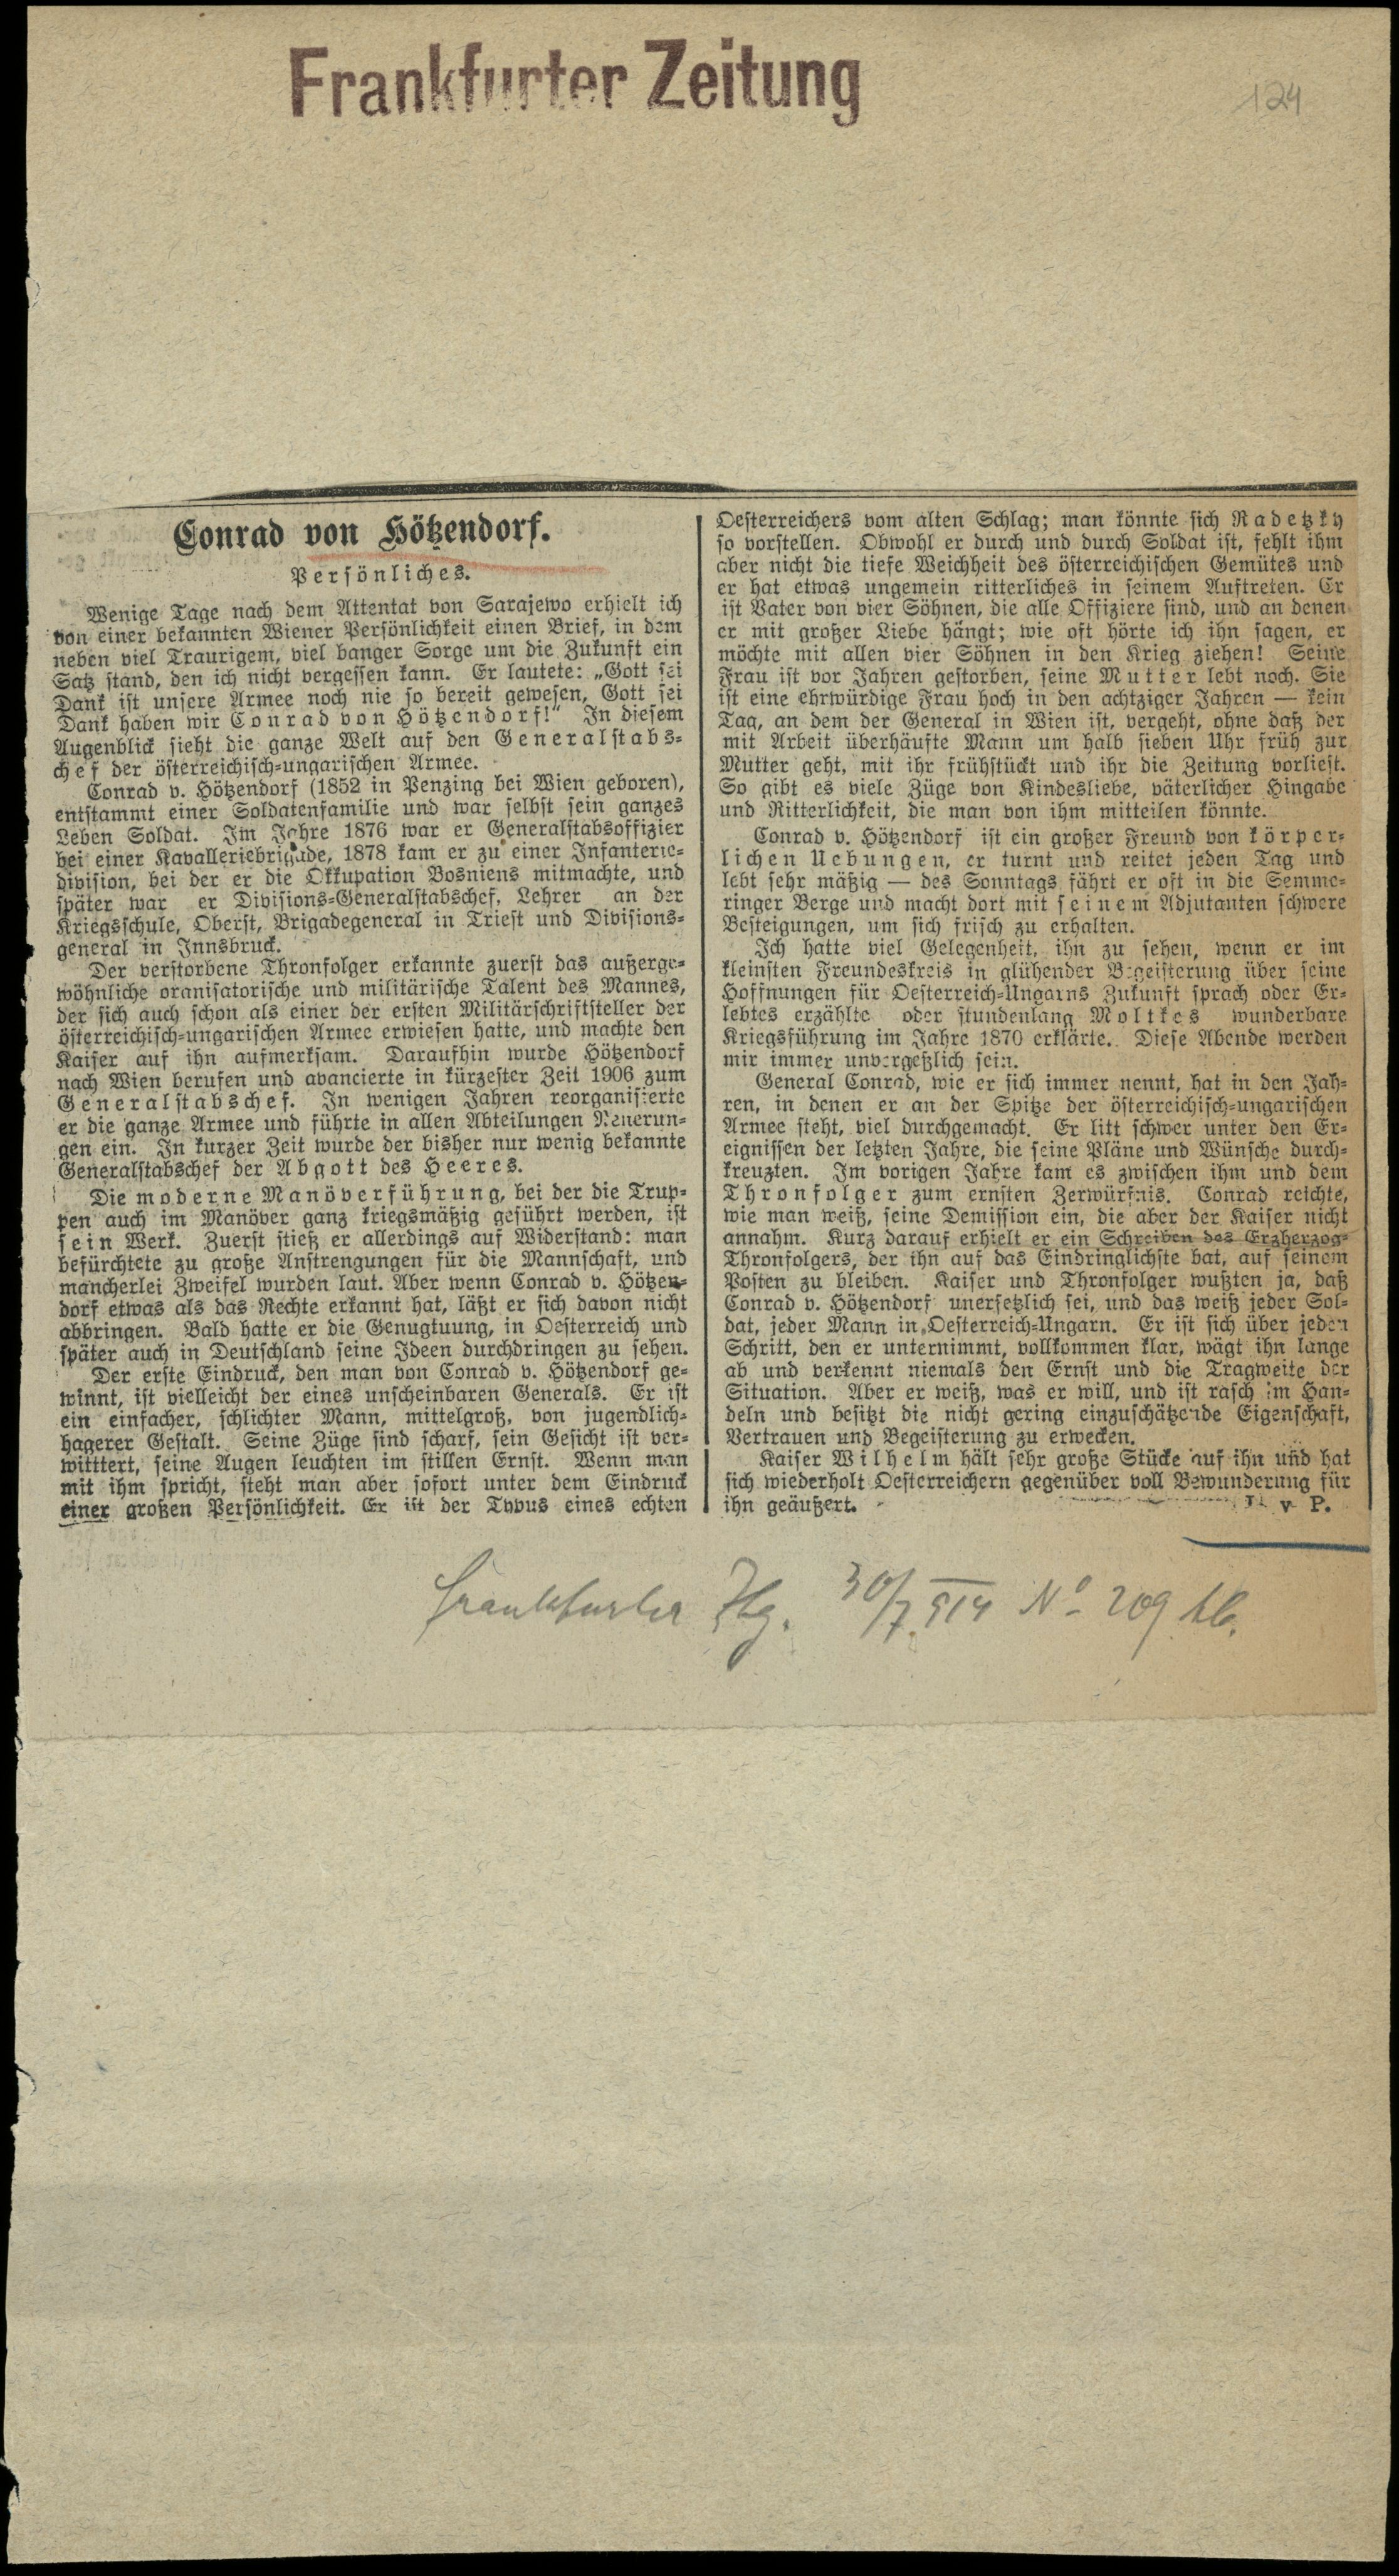 Frankfurter Zeitung
124
Conrad von Hötzendorf.
Persönliches.
Wenige Tage nach dem Attentat von Sarajewo erhielt ich
von einer bekannten Wiener Persönlichkeit einen Brief, in dem
neben viel Traurigem, viel banger Sorge um die Zukunft ein
Satz stand, den ich nicht vergessen kann. Er lautete: „Gott sei
Dank ist unsere Armee noch nie so bereit gewesen, Gott sei
Dank haben wir Conrad von Hötzendorf!" In diesem
Augenblick sieht die ganze Welt auf den Generalstabs-
chef der österreichisch-ungarischen Armee.
Conrad v. Hötzendorf (1852 in Penzing bei Wien geboren),
entstammt einer Soldatenfamilie und war selbst sein ganzes
Leben Soldat. Im Jahre 1876 war er Generalstabsoffizier
bei einer Kavalleriebrigade, 1878 kam er zu einer Infanterie-
division, bei der er die Okkupation Bosniens mitmachte, und
später war er Divisions-Generalstabschef, Lehrer an der
Kriegsschule, Oberst, Brigadegeneral in Triest und Divisions-
general in Innsbruck.
Der verstorbene Thronfolger erkannte zuerst das außerge-
wöhnliche oranisatorische und militärische Talent des Mannes,
der sich auch schon als einer der ersten Militärschriftsteller der
österreichisch-ungarischen Armee erwiesen hatte, und machte den
Kaiser auf ihn aufmerksam. Daraufhin wurde Hötzendorf
nach Wien berufen und avancierte in kürzester Zeit 1906 zum
Generalstabschef. In wenigen Jahren reorganisierte
er die ganze Armee und führte in allen Abteilungen Neuerun-
gen ein. In kurzer Zeit wurde der bisher nur wenig bekannte
Generalstabschef der Abgott des Heeres.
Die moderne Manöverführung, bei der die Trup-
pen auch im Manöver ganz kriegsmäßig geführt werden, ist
sein Werk. Zuerst stieß er allerdings auf Widerstand: man
befürchtete zu große Anstrengungen für die Mannschaft, und
mancherlei Zweifel wurden laut. Aber wenn Conrad v. Hötzen-
dorf etwas als das Rechte erkannt hat, läßt er sich davon nicht
abbringen. Bald hatte er die Genugtuung, in Oesterreich und
später auch in Deutschland seine Ideen durchdringen zu sehen.
Der erste Eindruck, den man von Conrad v. Hötzendorf ge-
winnt, ist vielleicht der eines unscheinbaren Generals. Er ist
ein einfacher, schlichter Mann, mittelgroß, von jugendlich-
hagerer Gestalt. Seine Züge sind scharf, sein Gesicht ist ver-
witttert, seine Augen leuchten im stillen Ernst. Wenn man
mit ihm spricht, steht man aber sofort unter dem Eindruck
einer großen Persönlichkeit. Er ist der Typus eines echten
Oesterreichers vom alten Schlag; man könnte sich Radetzky
so vorstellen. Obwohl er durch und durch Soldat ist, fehlt ihm
aber nicht die tiefe Weichheit des österreichischen Gemütes und
er hat etwas ungemein ritterliches in seinem Auftreten. Er
ist Vater von vier Söhnen, die alle Offiziere sind, und an denen
er mit großer Liebe hängt; wie oft hörte ich ihn sagen, er
möchte mit allen vier Söhnen in den Krieg ziehen! Seine
Frau ist vor Jahren gestorben, seine Mutter lebt noch. Sie
ist eine ehrwürdige Frau hoch in den achtziger Jahren — kein
Tag, an dem der General in Wien ist, vergeht, ohne daß der
mit Arbeit überhäufte Mann um halb sieben Uhr früh zur
Mutter geht, mit ihr frühstückt und ihr die Zeitung vorliest.
So gibt es viele Züge von Kindesliebe, väterlicher Hingabe
und Ritterlichkeit, die man von ihm mitteilen könnte.
Conrad v. Hötzendorf ist ein großer Freund von körper-
lichen Uebungen, er turnt und reitet jeden Tag und
lebt sehr mäßig — des Sonntags fährt er oft in die Semme-
ringer Berge und macht dort mit seinem Adjutanten schwere
Besteigungen, um sich frisch zu erhalten.
Ich hatte viel Gelegenheit, ihn zu sehen, wenn er im
kleinsten Freundeskreis in glühender Begeisterung über seine
Hoffnungen für Oesterreich-Ungarns Zukunft sprach oder Er-
lebtes erzählte oder stundenlang Moltkes wunderbare
Kriegsführung im Jahre 1870 erklärte. Diese Abende werden
mir immer unvergeßlich sein.
General Conrad, wie er sich immer nennt, hat in den Jah-
ren, in denen er an der Spitze der österreichisch-ungarischen
Armee steht, viel durchgemacht. Er litt schwer unter den Er-
eignissen der letzten Jahre, die seine Pläne und Wünsche durch-
kreuzten. Im vorigen Jahre kam es zwischen ihm und dem
Thronfolger zum ernsten Zerwürfnis. Conrad reichte,
wie man weiß, seine Demission ein, die aber der Kaiser nicht
annahm. Kurz darauf erhielt er ein Schreiben des Erzherzog-
Thronfolgers, der ihn auf das Eindringlichste bat, auf seinem
Posten zu bleiben. Kaiser und Thronfolger wußten ja, daß
Conrad v. Hötzendorf unersetzlich sei, und das weiß jeder Sol-
dat, jeder Mann in Oesterreich-Ungarn. Er ist sich über jeden
Schritt, den er unternimmt, vollkommen klar, wägt ihn lange
ab und verkennt niemals den Ernst und die Tragweite der
Situation. Aber er weiß, was er will, und ist rasch im Han-
deln und besitzt die nicht gering einzuschätzende Eigenschaft,
Vertrauen und Begeisterung zu erwecken.
Kaiser Wilhelm hält sehr große Stücke auf ihn und hat
sich wiederholt Oesterreichern gegenüber voll Bewunderung für
ihn geäußert.
v P.
Frankfurter Ztg. 30/7 914 Nº 209